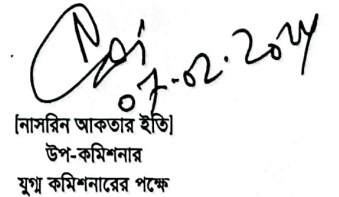 07-02-2024
[নাসরিন আকতার ইতি]
উপ-কমিশনার
যুগ্ম কমিশনারের পক্ষে